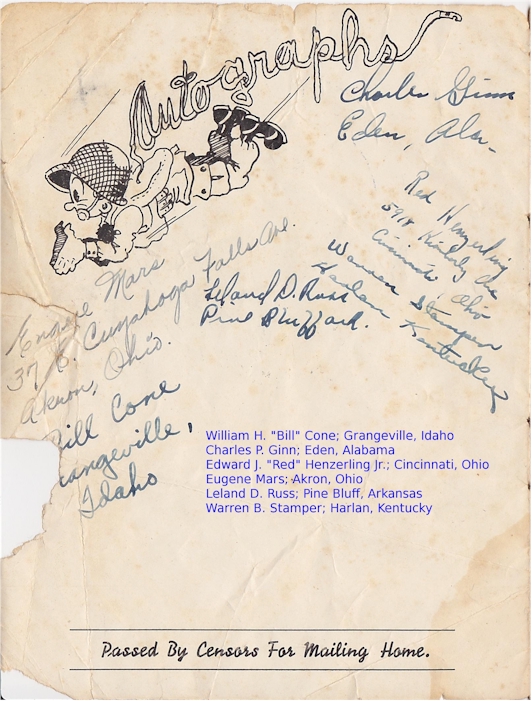 Autographs
Charles Ginn
Eden, Ala.
Red Henzerling
Cincinnati, Ohio
Warren Stamper
Harlan Kentucky
Leland D. Russ
Pine Bluff Ark.
Eugene Mars
37 E. Cuyahoga Falls Ave.
Akron, Ohio.
Bill Cone
rangeville,
Idaho
William H. "Bill" Cone; Grangeville, Idaho
Charles P. Ginn; Eden, Alabama
Edward J. "Red" Henzerling Jr.; Cincinnati, Ohio
Eugene Mars; Akron, Ohio
Leland D. Russ; Pine Bluff, Arkansas
Warren B. Stamper; Harlan, Kentucky
Passed By Censors For Mailing Home.